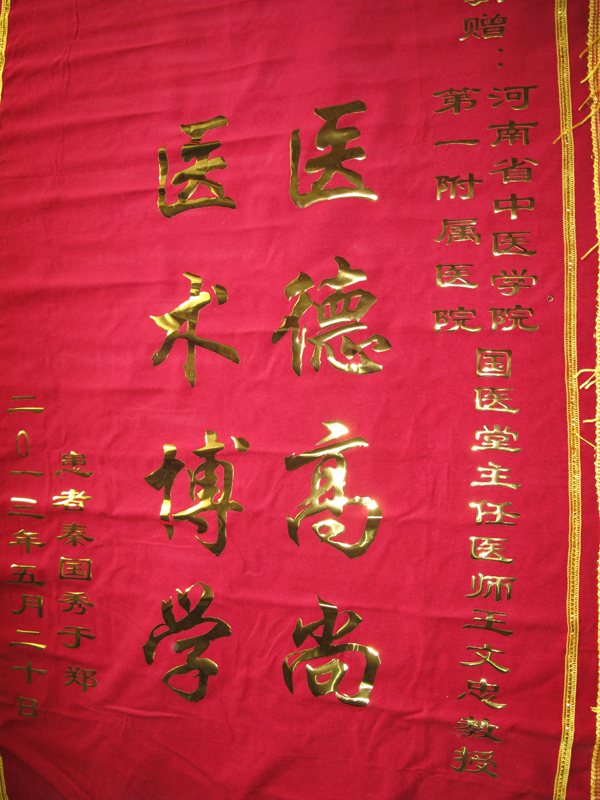 赠：
河南省中医学院
第一附属医院
国医堂主任医师王文忠教授
医德高尚
医术博学
患者秦国秀于郑
二〇一三年五月二十日